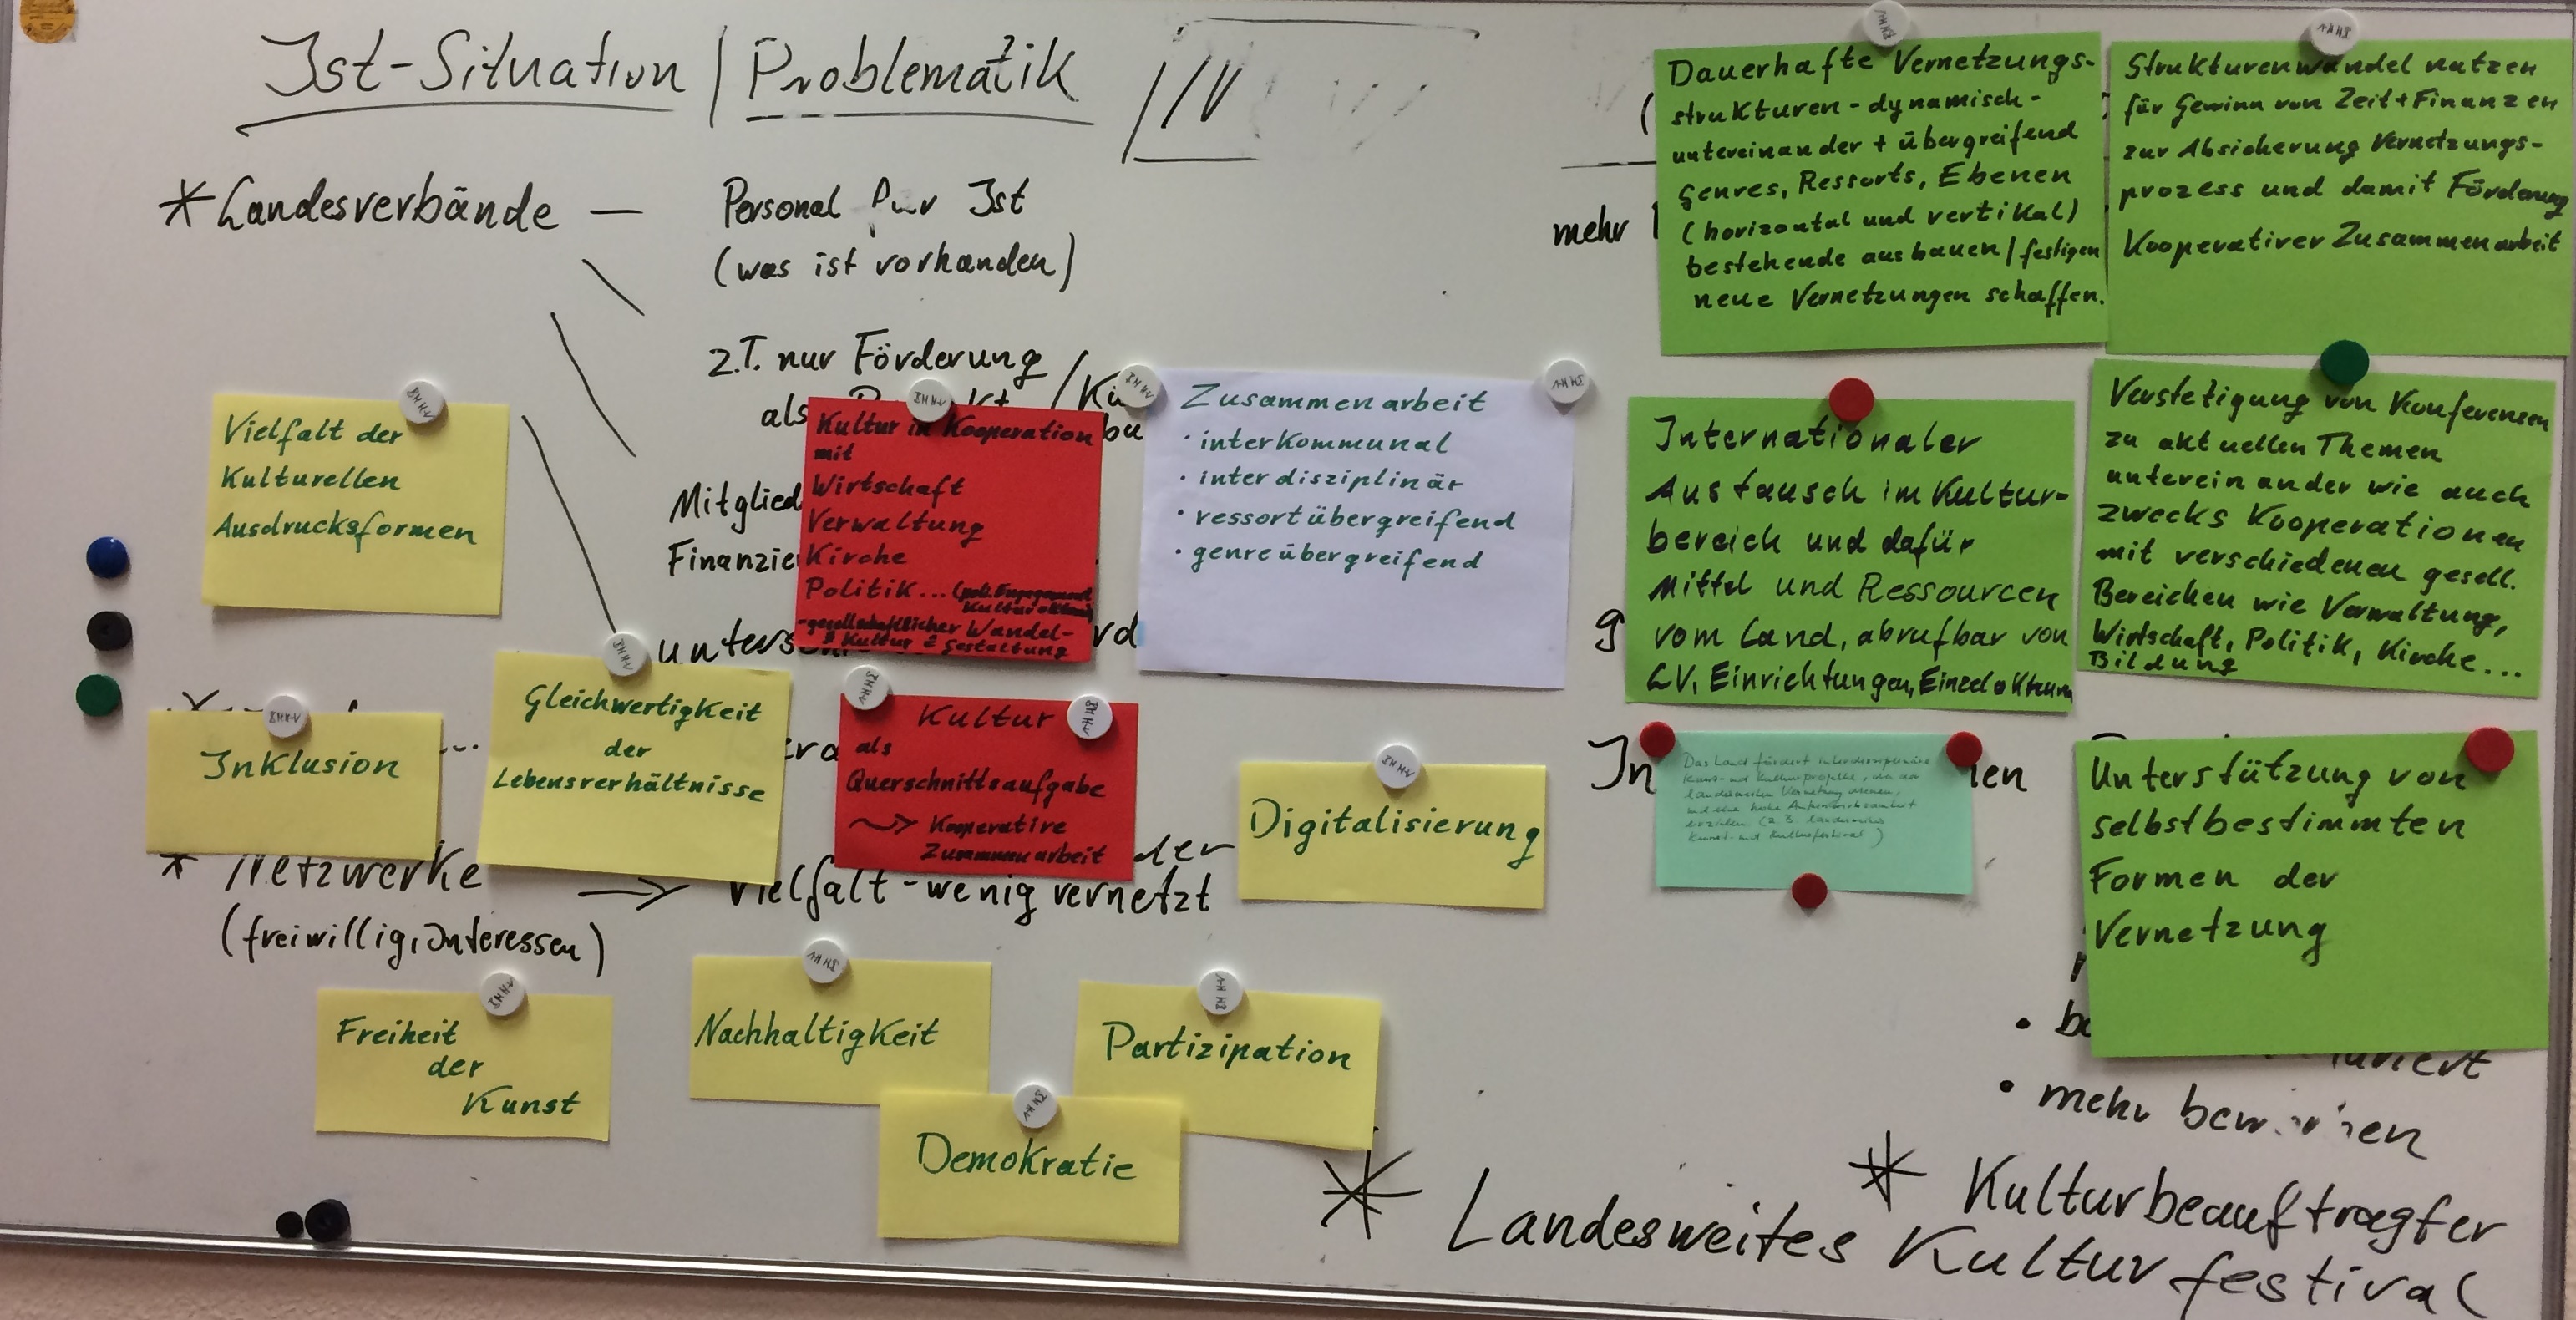 Ist-Situation / Problematik
* Landesverbände — Personal Ist
(was ist vorhanden)
z.T. nur Förderung
als
Mitglied
Finanzie
unters
* Netzwerke
(freiwillig, Interessen)
Vielfalt - wenig vernetzt
Vielfalt der
Kulturellen
Ausdrucksformen
Inklusion
Gleichwertigkeit
der
Lebensverhältnisse
Freiheit
der
Kunst
Nachhaltigkeit
Demokratie
Partizipation
Digitalisierung
Kultur in Kooperation
mit
Wirtschaft
Verwaltung
Kirche
Politik...
- gesellschaftlicher Wandel -
Kultur = Gestaltung
Kultur
als
Querschnittsaufgabe
Kooperative
Zusammenarbeit
Zusammenarbeit
· interkommunal
· interdisziplinär
· ressortübergreifend
· genreübergreifend
mehr
Dauerhafte Vernetzungs-
strukturen - dynamisch -
untereinander + übergreifend
Genres, Ressorts, Ebenen
(horizontal und vertikal)
bestehende ausbauen / festigen
neue Vernetzungen schaffen.
Strukturenwandel nutzen
für Gewinn von Zeit + Finanzen
zur Absicherung Vernetzungs-
prozess und damit Förderung
Kooperativer Zusammenarbeit
Internationaler
Austausch im Kultur-
bereich und dafür
Mittel und Ressourcen
vom Land, abrufbar von
LV, Einrichtungen, Einzelakteuren
Verstetigung von Konferenzen
zu aktuellen Themen
untereinander wie auch
zwecks Kooperationen
mit verschiedenen gesell.
Bereichen wie Verwaltung,
Wirtschaft, Politik, Kirche...
Bildung
In
Das Land fördert interdisziplinäre
Kunst- und Kulturprojekte, die der
landesweiten Vernetzung dienen,
und eine hohe Aufmerksamkeit
erzielen (z.B. landesweites
Kunst- und Kulturfestival)
Unterstützung von
selbstbestimmten
Formen der
Vernetzung
• mehr
* Kulturbeauftragter
* Landesweites Kulturfestival